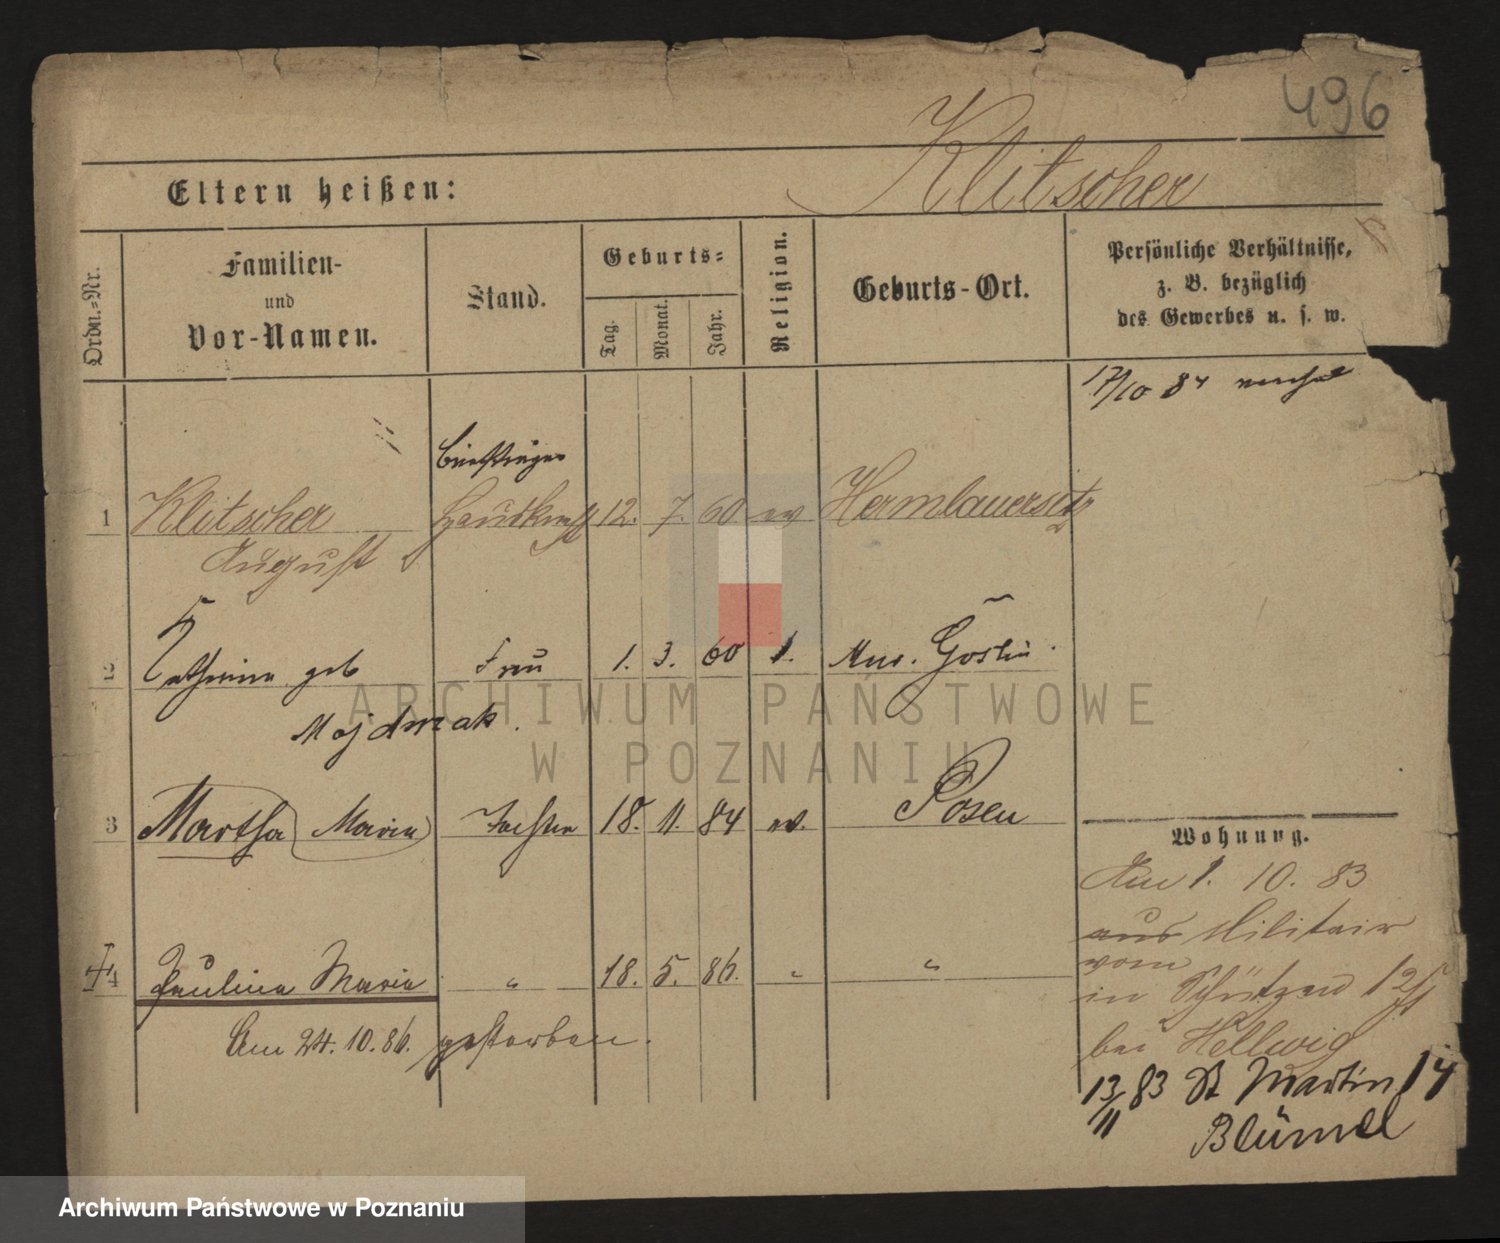 496
Klitscher
Eltern heißen:
Ordn.-Nr.
Familien-
und
Vor-Namen.
Stand.
Geburts-
Tag.
Monat.
Jahr.
Religion.
Geburts-Ort.
Persönliche Verhältnisse,
z. B. bezüglich
des Gewerbes u. s. w.
17/10 84
Briefträger
1 Klitscher 12. 7. 60 ev
August
2 geb Frau 1. 3. 60 Mur. Goslin.
Majdrzak.
3 Martha Maria Tochter 18. 11. 84 ev. Posen
4 Paulina Maria " 18. 5. 86. " "
Am 24. 10. 86. gestorben.
Wohnung.
Am 1. 10. 83
aus Militair
vom
in Schützen 12
bei Hellwig
13/11 83 St Martin 14
Blümel
ARCHIWUM PAŃSTWOWE
W POZNANIU
Archiwum Państwowe w Poznaniu